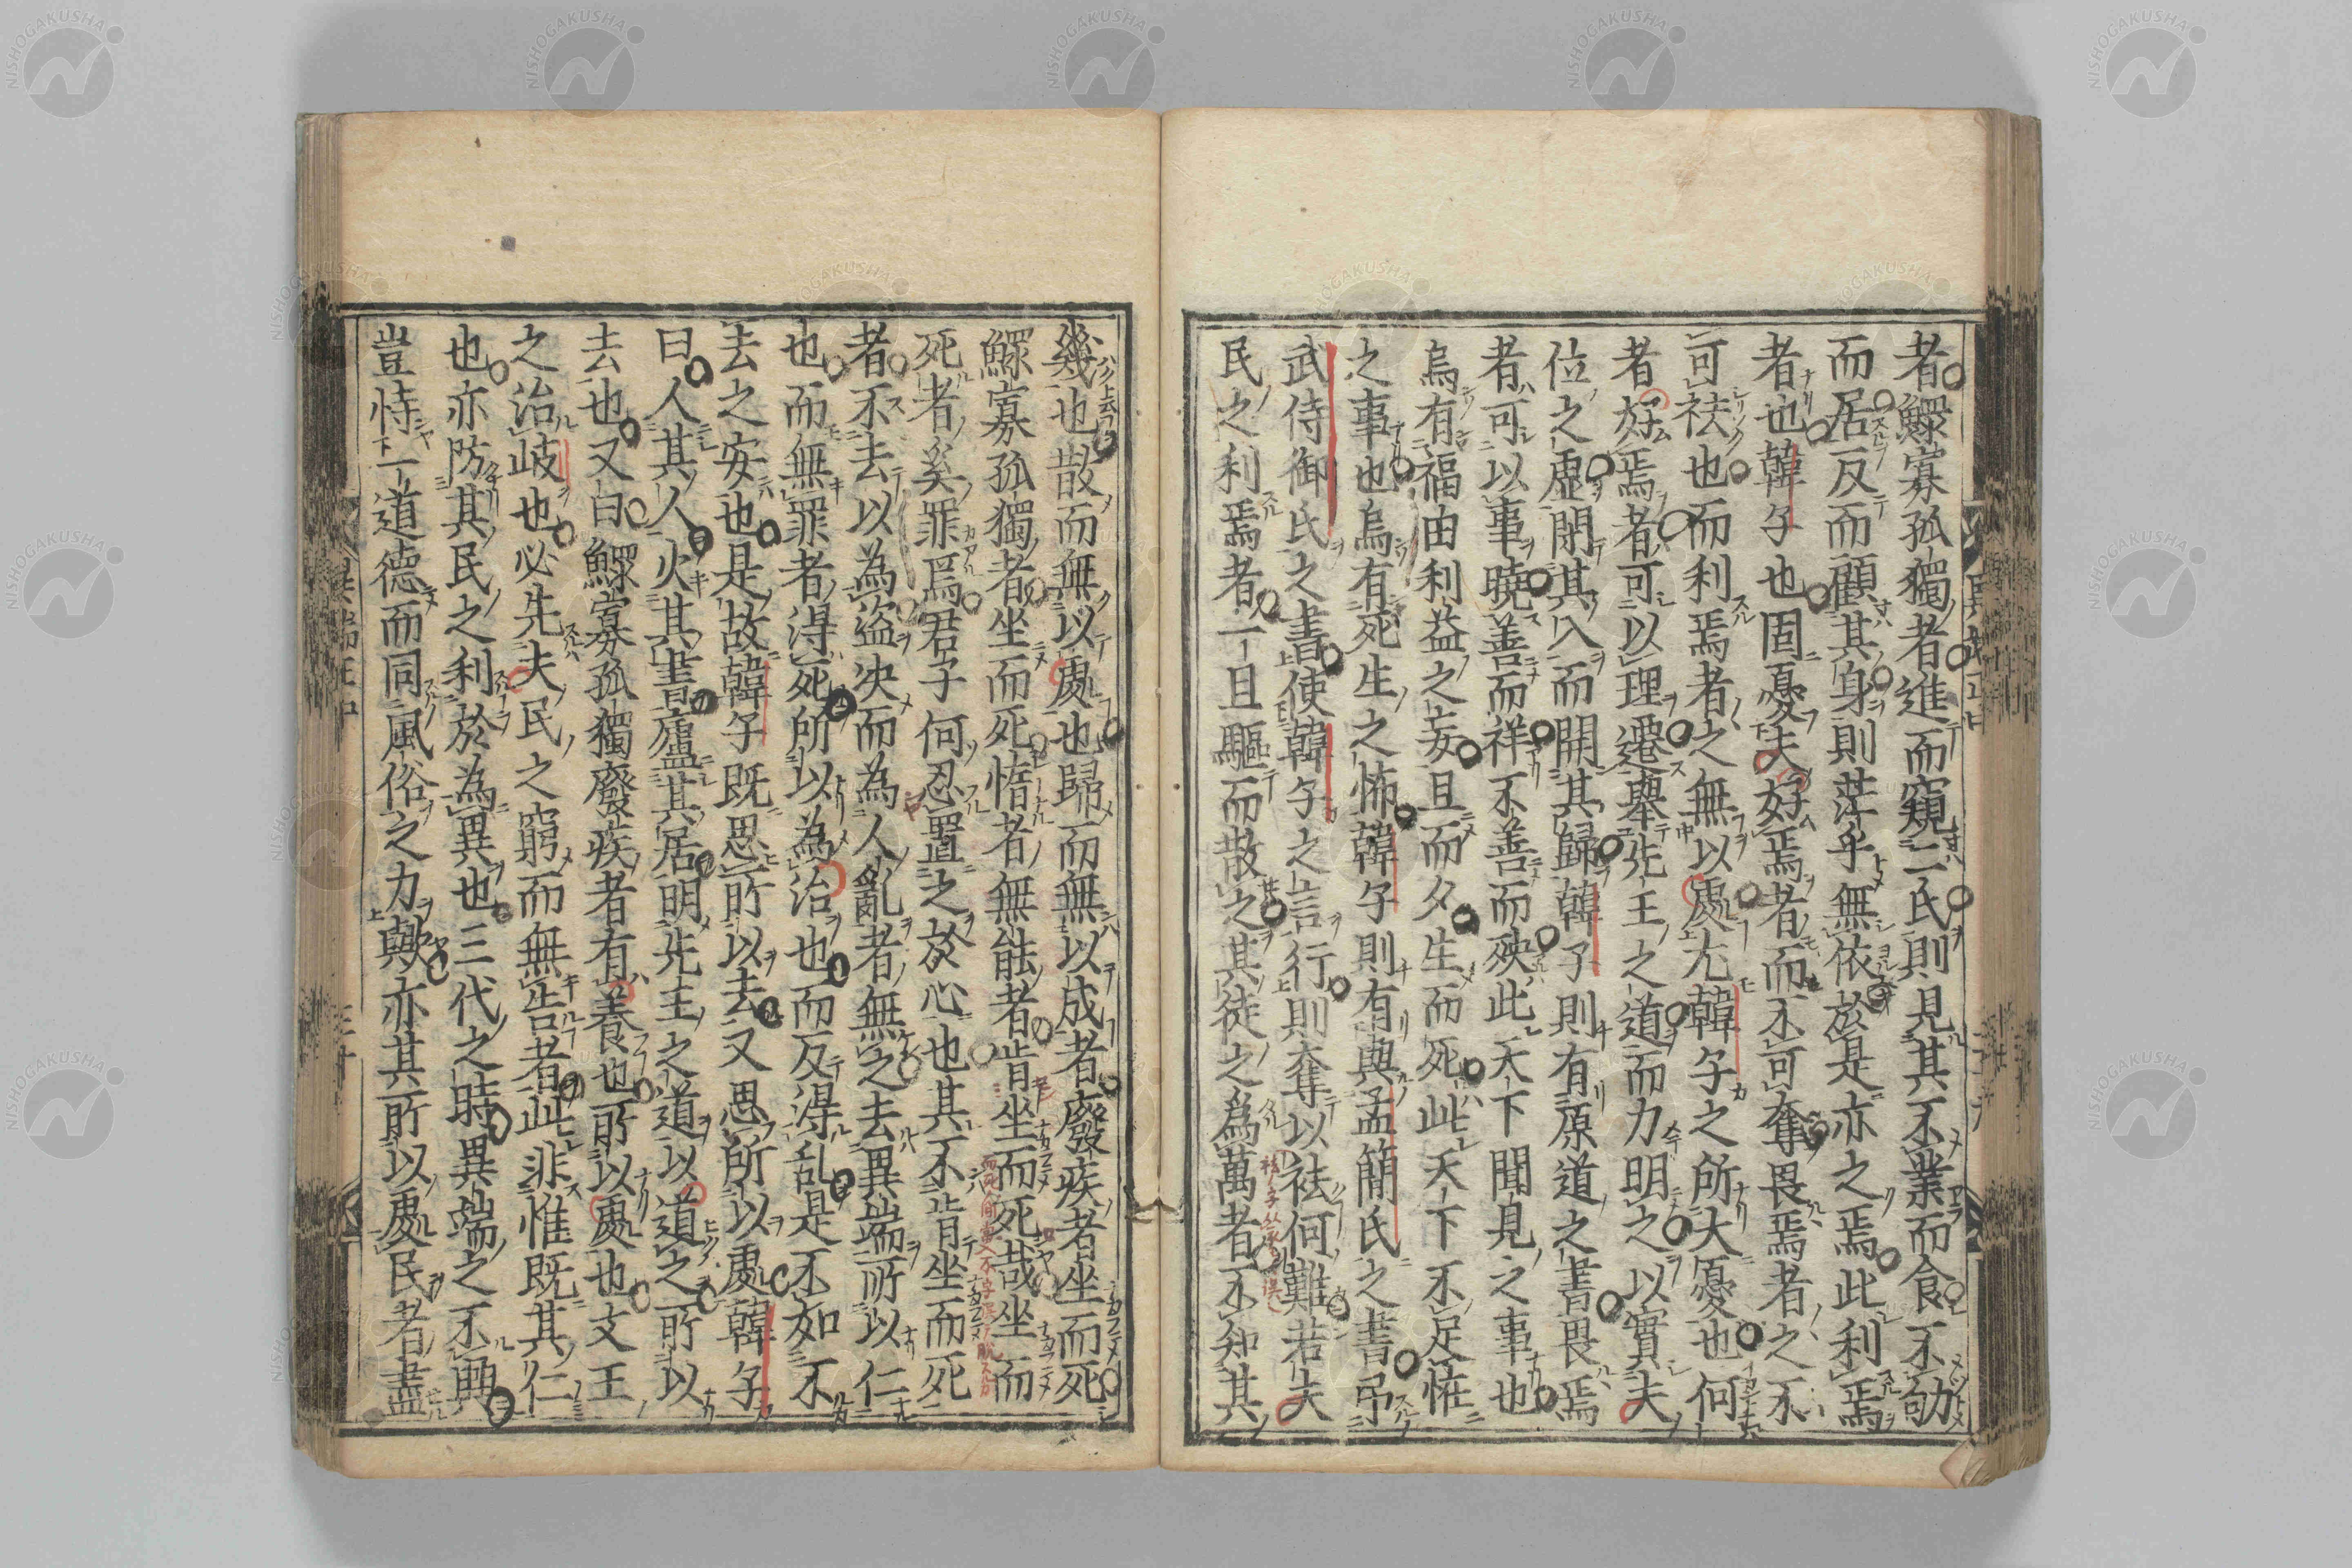 者鰥寡孤獨者進而窺二氏則見其不業而食不劬
而居反而顧其身則茫乎無依於是亦之焉此利焉
者也韓子也固憂夫好焉者而不可奪畏焉者之不
可祛也而利焉者之無以處尤韓子之所大憂也何
者好焉者可以理遷舉先王之道而力明之以實夫
位之虛閉其入而開其歸韓子則有原道之書畏焉
者可以事曉善而祥不善而殃此天下聞見之事也
烏有福由利益之妄且而夕生而死此天下不足恠
之事也烏有死生之怖韓子則有與孟簡氏之書弔
武侍御氏之書使韓子之言行則奪以祛何難若夫
民之利焉者一旦驅而散之其徒之為萬者不知其
幾也散而無以處也歸而無以成者廢疾者坐而死
鰥寡孤獨者坐而死惰者無能者肯坐而死哉坐而
死者奚罪焉君子何忍置之於心也其不肯坐而死
者不去以為盜決而為人亂者無之去異端所以仁
也而無罪者得死所以為治也而反得乱是不如不
去之安也是故韓子既思所以去又思所以處韓子
曰人其人火其書廬其居明先王之道以道之所以
去也又曰鰥寡孤獨廢疾者有養也所以處也文王
之治岐也必先夫民之窮而無告者此非惟既其仁
也亦防其民之利於為異也三代之時異端之不興
豈恃一道德而同風俗之力歟亦其所以處民者盡